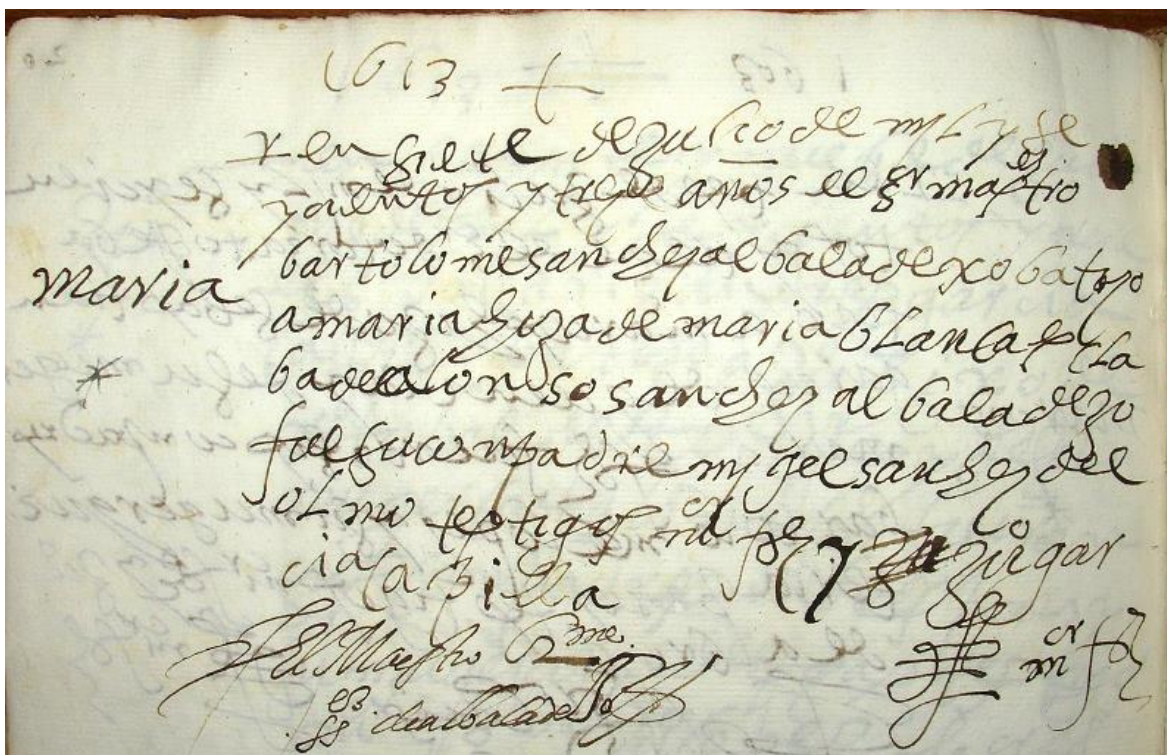 1613
en siete de julio de myl y se
ycientos y treze años el sr maestro
bartolome sanchez al baladexo batizo
maria
a maria hiza de maria blanca escla
ba de alonso sanchez al baladezo
fue su compadre mygel sanchez del
olmo testigos frz y ju gar
cia ca billa
El Maestro Bme
de albaladejo